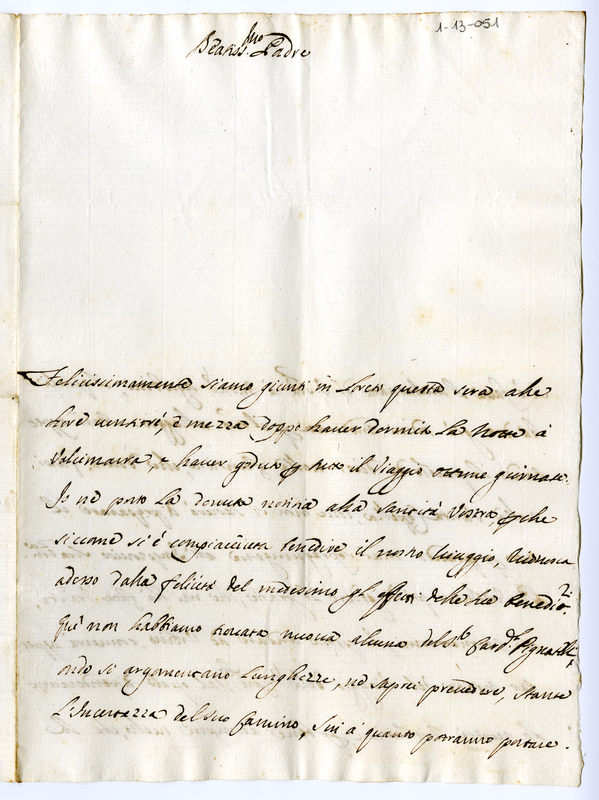 1-13-051
Beatiss.mo Padre
Felicissimamente siamo giunti in Loreto questa sera alle
hore ventitré, e mezza doppo haver dormito la notte à
Valcimarra e haver goduto p tutto il viaggio ottime giornate.
Io ne porto la dovuta notizia alla Santità Vostra, pche
siccome si è compiaciuta benedire il nostro viaggio, riconosca
adesso dalla felicità del medesimo gl'effetti della sua benedi.ne
Qui non habbiamo trovata nuova alcuna del S. Card.l
onde si argomentano lunghezze, né saprei prevedere, stante
l'incertezza del suo camino, sin à quanto potranno portare.